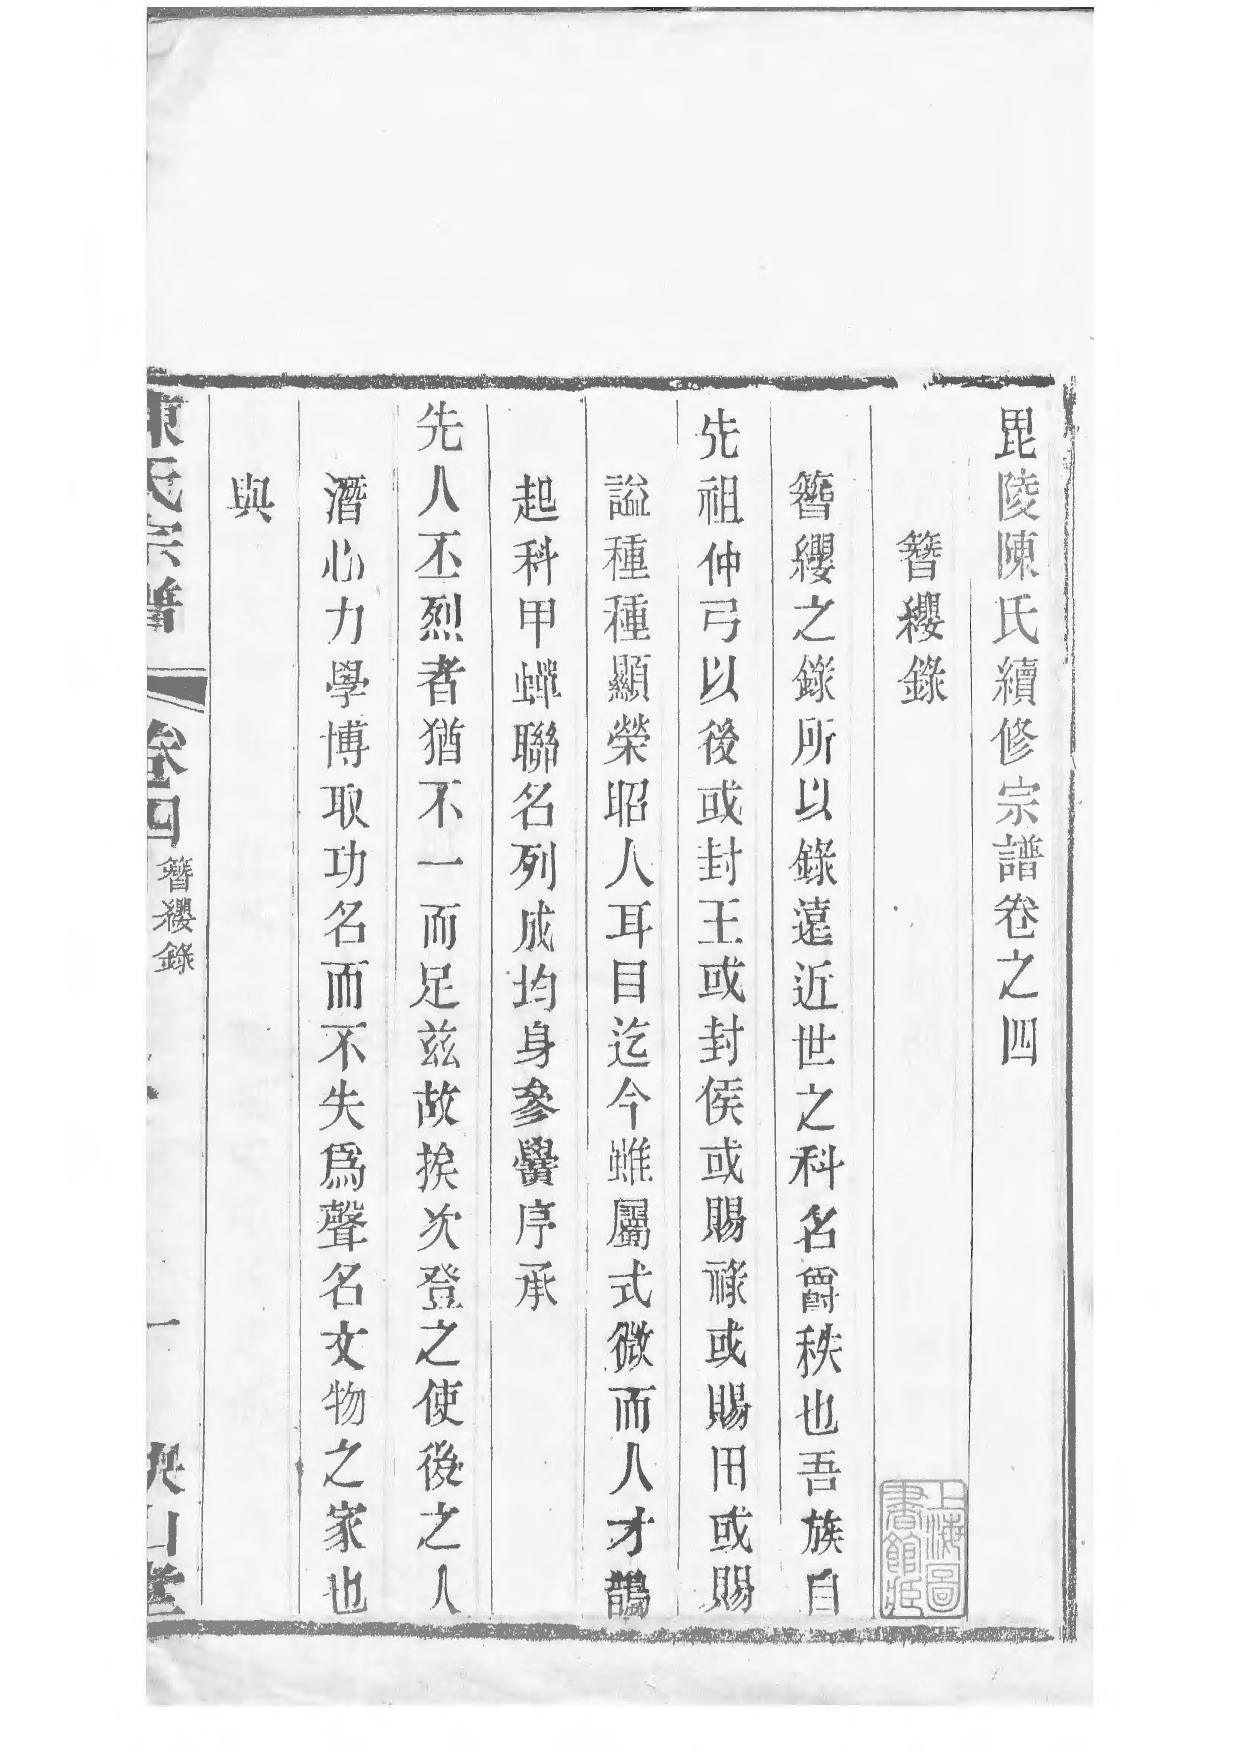 毘陵陳氏續修宗譜卷之四
簪纓錄
簪纓之錄所以錄遠近世之科名爵秩也吾族自
先祖仲弓以後或封王或封侯或賜祿或賜田或賜
謚種種顯榮昭人耳目迄今雖屬式微而人才鵲
起科甲蟬聯名列成均身參黌序承
先人丕烈者猶不一而足茲故挨次登之使後之人
潛心力學博取功名而不失爲聲名文物之家也
與
陳氏宗譜
卷四
簪纓錄
一
上海圖書館藏